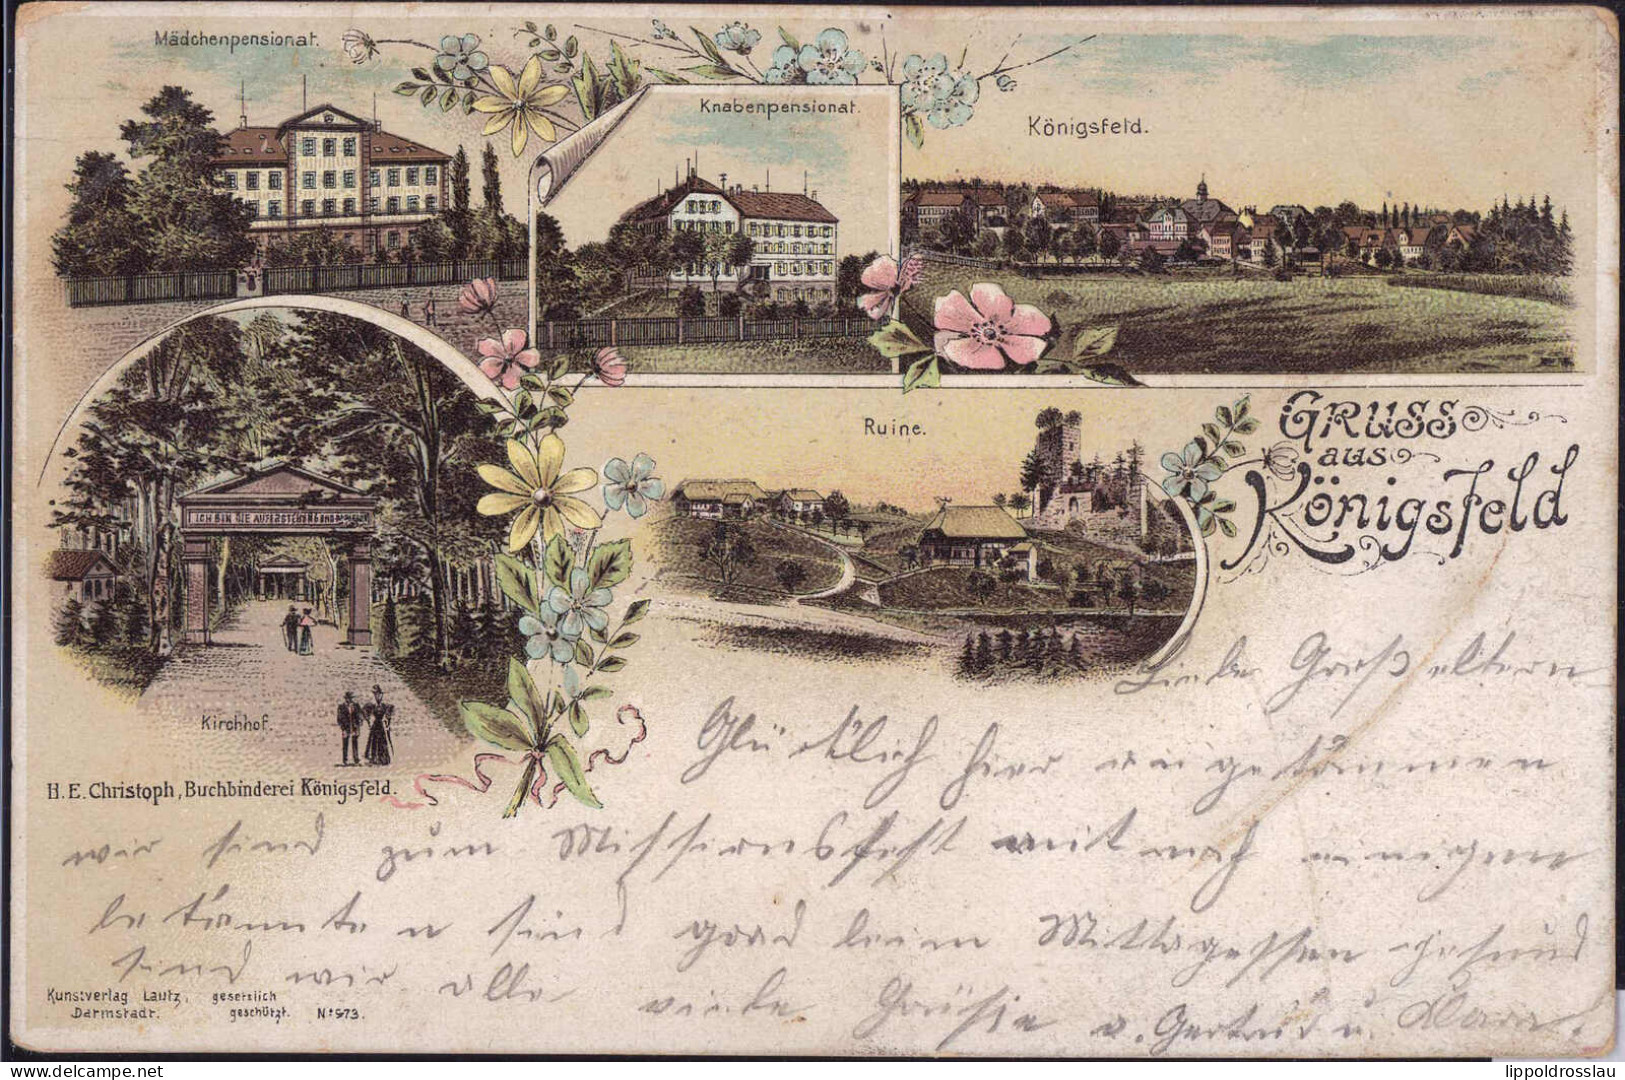 Mädchenpensionat.
Knabenpensionat.
Königsfeld.
Ruine.
GRUSS
aus
Königsfeld
ICH BIN DIE AUFERSTEHUNG UND
Kirchhof.
H. E. Christoph, Buchbinderei Königsfeld.
Liebe Großeltern
Glücklich hier angekommen
wir sind zum Missionsfest mit noch einigen
bekannten sind grad beim Mittagessen gesund
sind wir alle viele Grüße v. Gertrud u.
Kunstverlag Lautz, gesetzlich
Darmstadt. geschützt. No 973.
lippoldrosslau